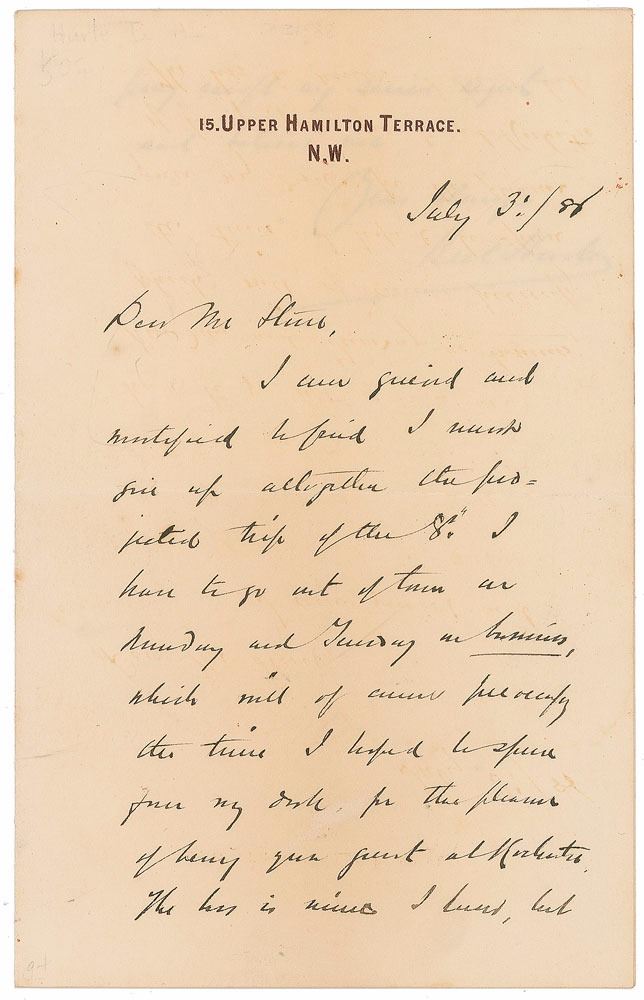 15. UPPER HAMILTON TERRACE.
N.W.
July 3:/86
Dear Mr
I am grieved and
mortified to find I must
give up altogether the pro=
jected trip of the 8". I
have to go out of town on
Monday and Tuesday on business,
which will of course preoccupy
the time I hoped to spare
from my desk for the pleasure
of being your guest at Rochester.
The loss is mine I know, but